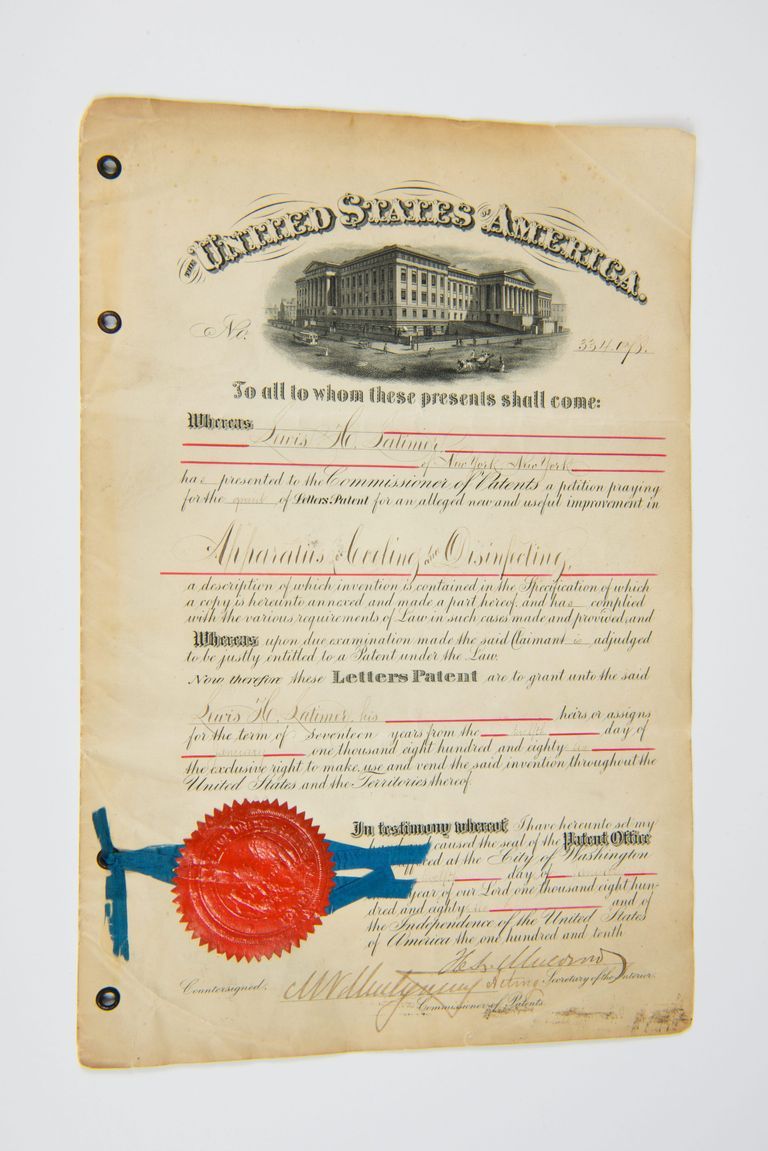 THE UNITED STATES OF AMERICA.
No. 334,078.
To all to whom these presents shall come:
Whereas Lewis H. Latimer,
of New York, New York,
has presented to the Commissioner of Patents a petition praying
for the grant of Letters Patent for an alleged new and useful improvement in
Apparatus for Cooling and Disinfecting,
a description of which invention is contained in the Specification of which
a copy is hereunto annexed and made a part hereof, and has complied
with the various requirements of Law in such cases made and provided, and
Whereas upon due examination made the said Claimant is adjudged
to be justly entitled to a Patent under the Law.
Now therefore these Letters Patent are to grant unto the said
Lewis H. Latimer, his heirs or assigns
for the term of seventeen years from the twelfth day of
January one thousand eight hundred and eighty six
the exclusive right to make, use and vend the said invention throughout the
United States and the Territories thereof.
In testimony whereof I have hereunto set my
caused the seal of the Patent Office
affixed at the City of Washington
day of
year of our Lord one thousand eight hun-
dred and eighty and of
the Independence of the United States
of America the one hundred and tenth
Countersigned: Acting Secretary of the Interior.
Commissioner of Patents.